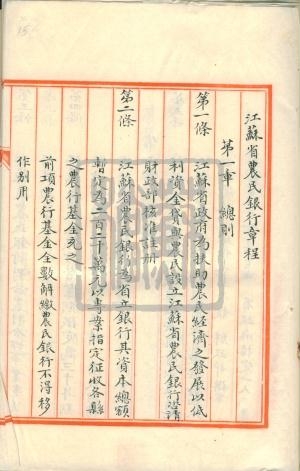 江蘇省農民銀行章程
第一章　總則
第一條
江蘇省政府為扶助農人經濟之發展以低
利資金貸與農民設立江蘇省農民銀行咨請
財政部核准註冊
第二條
江蘇省農民銀行為省立銀行其資本總額
暫定為二百二十萬元以專案指定征收各縣
之農行基金充之
前項農行基金全數解繳農民銀行不得移
作別用